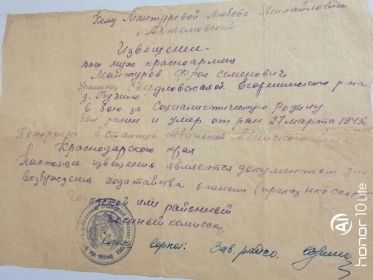 Кому Мантуровой Любове Михайловне
г. Артемовский
Извещение.
Ваш муж красноармеец
Мантуров Фрол Семенович
Уроженец Свердловской обл. Егоршинского р-на
д. Бузино
в бою за Социалистическую Родину
был ранен и умер от ран 27 марта 1943г
Похоронен в станице Абинской Абинского
Краснодарского края
Настоящее извещение является документом для
возбуждения ходатайства о пенсии (приказ НКО СССР
или районный
военный комиссар
HONOR 10 Lite
AI